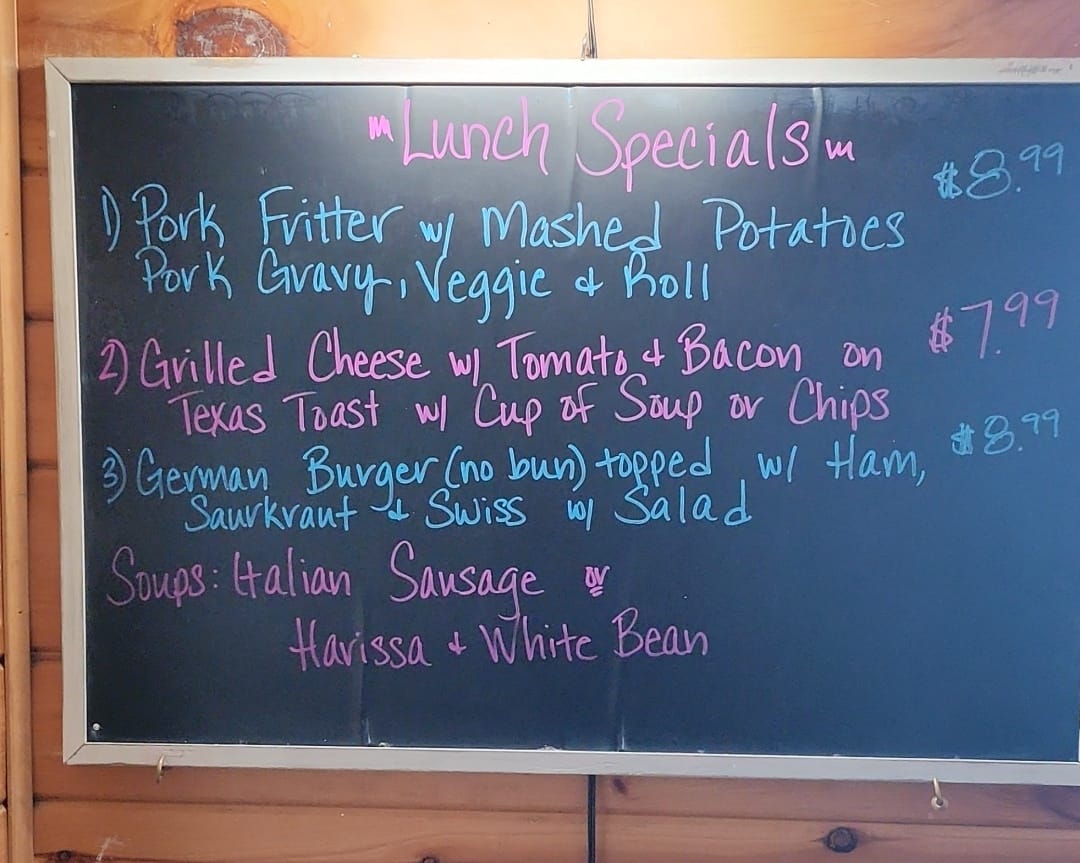 "Lunch Specials"
1) Pork Fritter w/ Mashed Potatoes $8.99
Pork Gravy, Veggie & Roll
2) Grilled Cheese w/ Tomato & Bacon on $7.99
Texas Toast w/ Cup of Soup or Chips
3) German Burger (no bun) topped w/ Ham, $8.99
Saurkraut & Swiss w/ Salad
Soups: Italian Sausage or
Harissa & White Bean